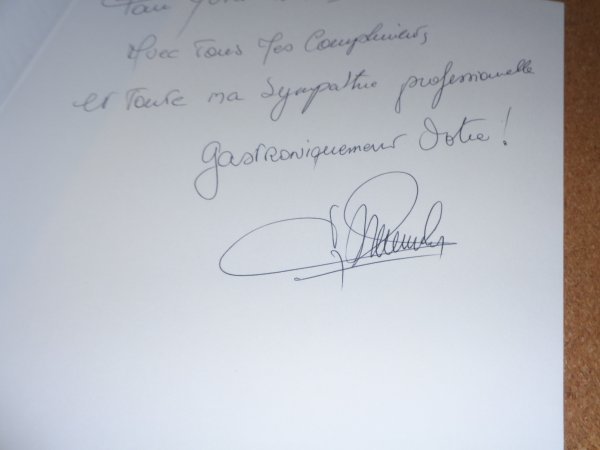 Avec Tous Mes Compliments
et Toute ma Sympathie professionnelle
gastroniquement Votre !